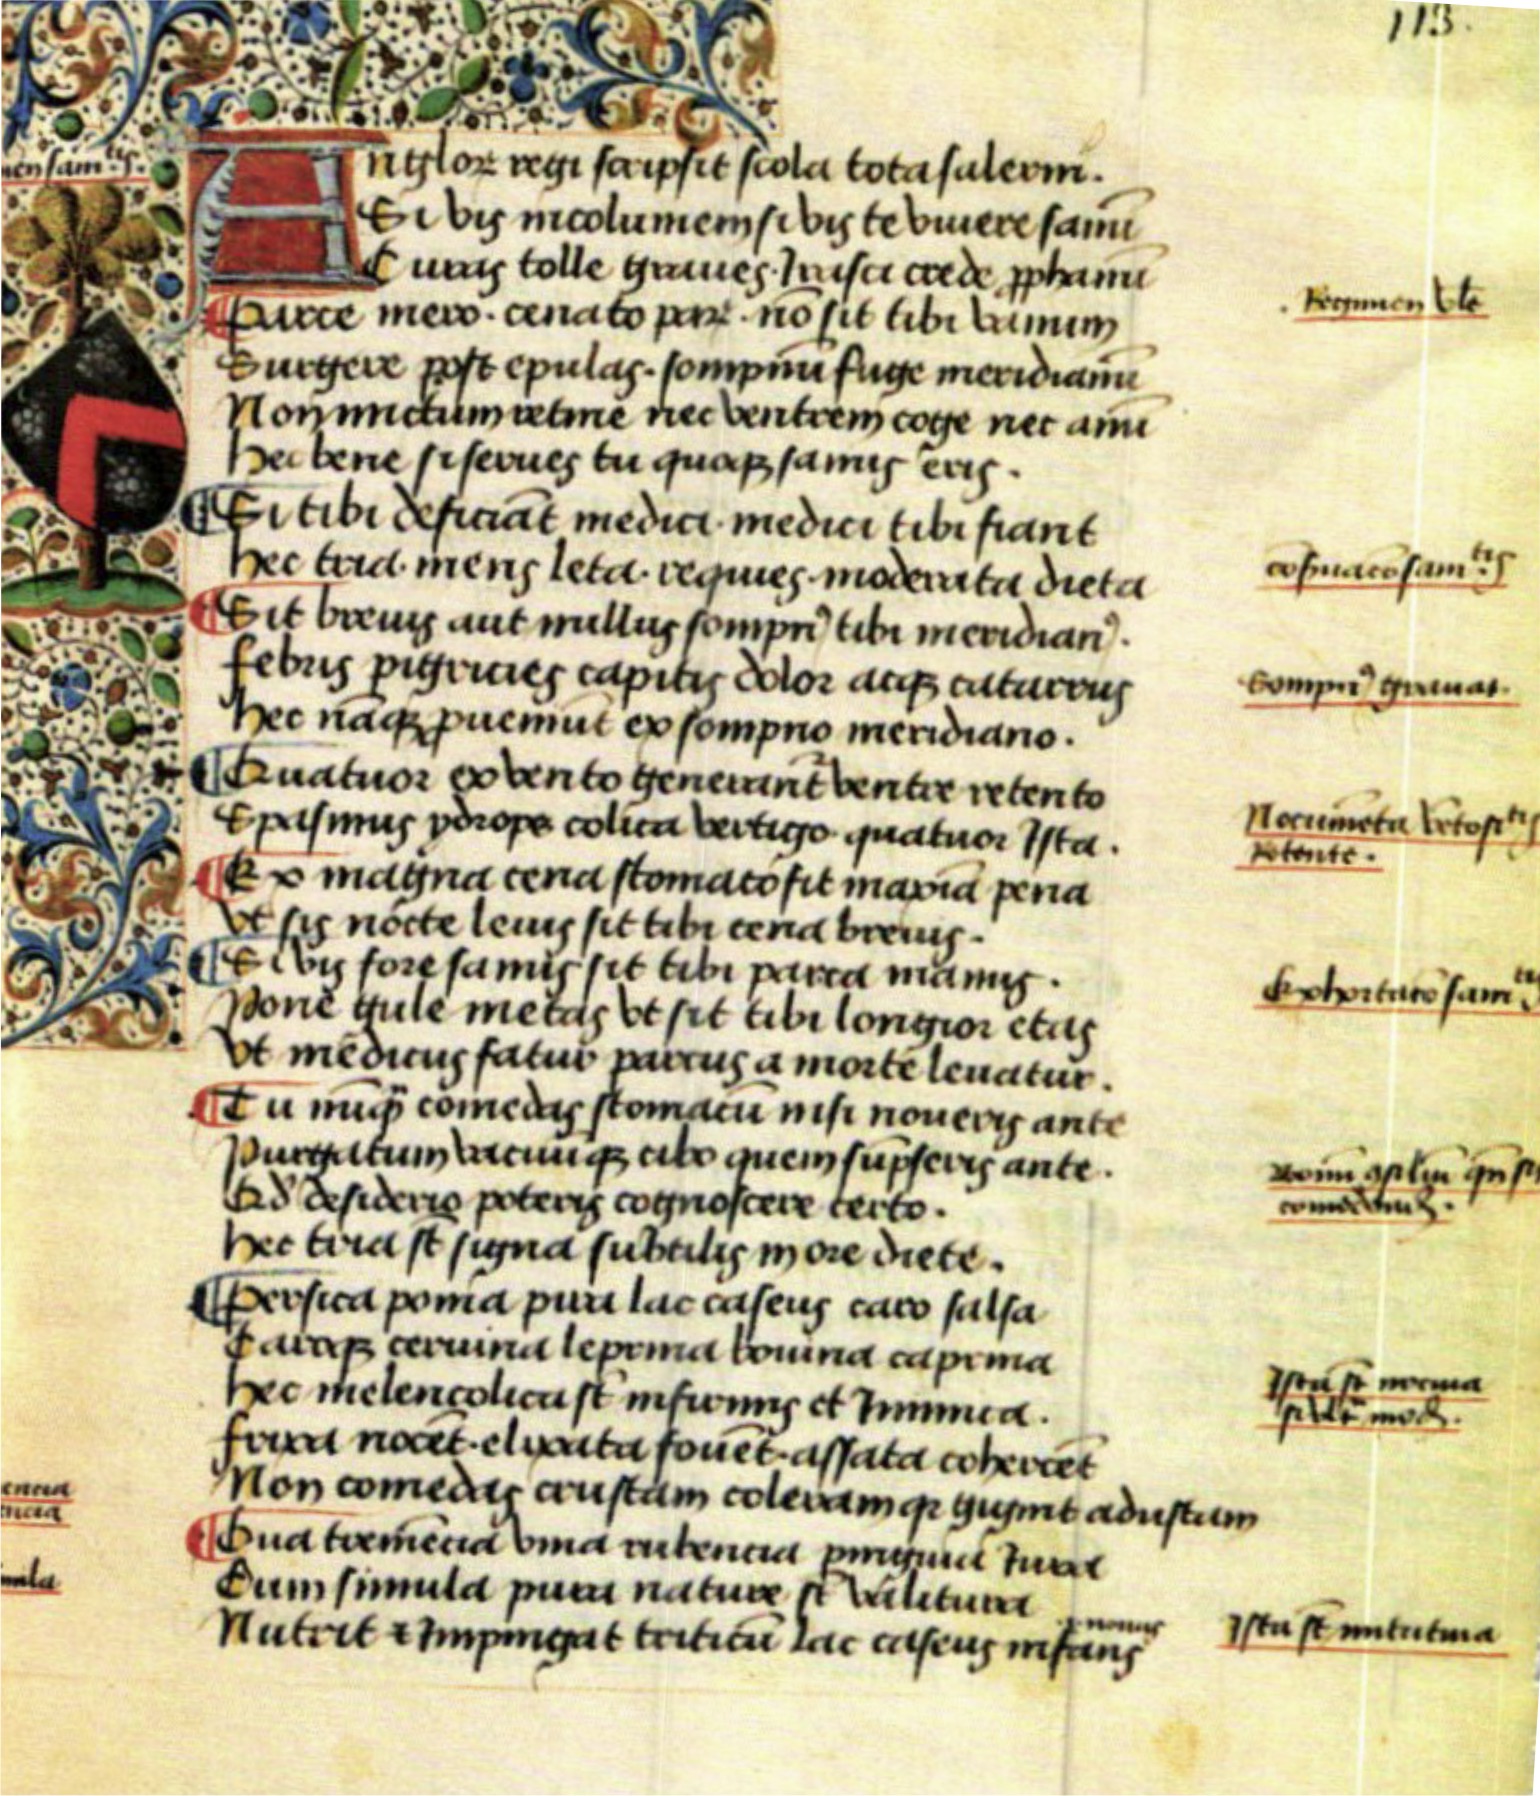 113.
Anglor regi scripsit scola tota salerni.
Si vis incolumem si vis te viuere sanū
Curas tolle graues. Irasci crede pphanū
Parce mero. cenato par. nō sit tibi vanum
Surgere post epulas. sompnū fuge meridianū
Non mictum retine nec ventrem coge nec anū
Hec bene si serues tu quoqz sanus eris.
Si tibi deficiāt medici. medici tibi fiant
Hec tria. mens leta. requies. moderata dieta
Sit breuis aut nullus sompnꝰ tibi meridianꝰ.
Febris pigricies capitis dolor atqz catarrus
Hec nāqz pueniūt ex sompno meridiano.
Quatuor ex vento generant ventre retento
Spasmus ydrops colica vertigo quatuor Ista.
Ex magna cena stomaco fit maxīa pena
Vt sis nocte leuis sit tibi cena breuis.
Si vis fore sanus sit tibi parca manus.
Pone gule metas vt sit tibi longior etas
Vt medicus fatur parcus a morte leuatur.
Tu nūqꝫ comedas stomacū nisi noueris ante
Purgatum vacuūqz cibo quem sūpseris ante.
desiderio poteris cognoscere certo.
Hec tria st signa subtilis in ore diete.
Persica poma pira lac caseus caro salsa
Caroqz ceruina leporina bouina caprina
Hec melencolica st infirmis et Inimica.
Frixa nocēt. elixata fouēt. assata cohercēt
Non comedas crustam coleram qr gignit adustam
Oua recencia vina rubencia pinguia Iura
Cum simula pura nature st valitura
Nutrit et Impingat triticū lac caseus infans
Regimen vle
cōseruaco sanitis
Sompnꝰ grauat.
Nocumēta vētositis
retente.
Exhortaco sanitis
Ista st nociua
Ista st nutritiua